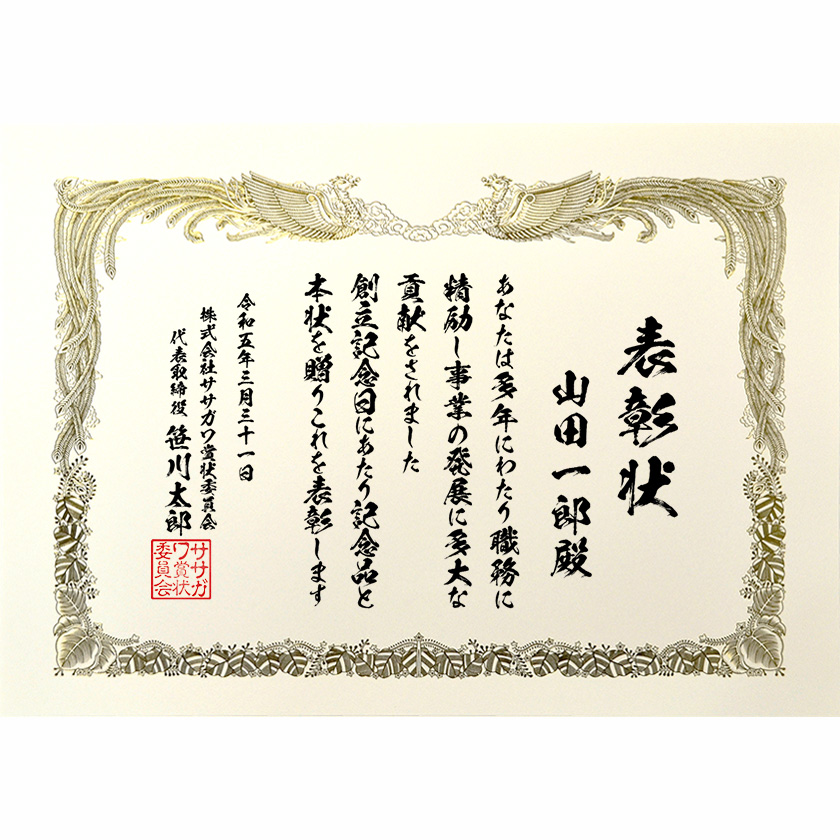 表彰状
山田一郎殿
あなたは多年にわたり職務に
精励し事業の発展に多大な
貢献をされました
創立記念日にあたり記念品と
本状を贈りこれを表彰します
令和五年三月三十一日
株式会社ササガワ賞状委員会
代表取締役 笹川太郎
ササガ
ワ賞状
委員会